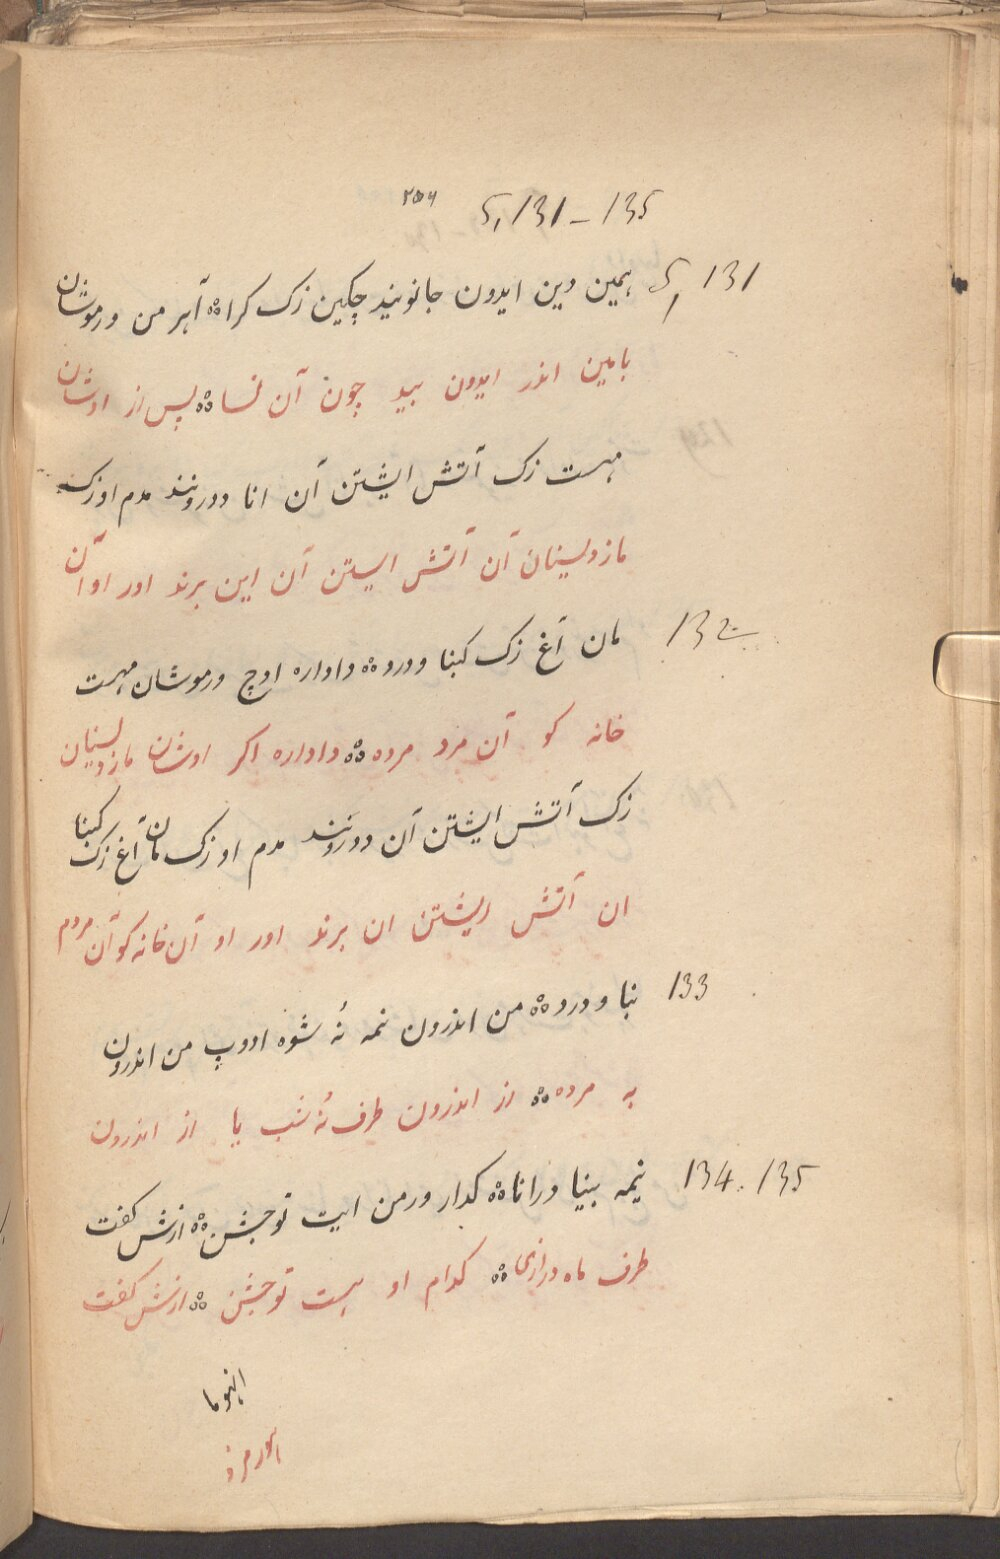 ۲۵۶ 5,131-135
5,131 همین دین ایدون جانونید چکین زک کرا ه ه آهر من ورموشان
بامین اندر ایدون بید چون آن نسا ه ه پس از اوشان
مهست زک آتش ایشتن آن انا دورونند مدم او زک
مازدیسنان آن آتش ایستن آن این برند اور او آن
132 مان آغ زک کبنا وورو ه ه داواره اوچ ورموشان مهمت
خانه کو آن مرد مرده ه ه داواره اکر اوشان مازدیسنان
زک آتش ایشتن آن دورونند مدم او زک مان آغ زک کبنا
ان آتش ایشتن ان برند اور او آن خانه کو آن مردم
133 بنا وورو ه ه من اندرون نمه نُه شوه ادوپ من اندرون
به مرده ه ه از اندرون طرف نُه شب یا از اندرون
134.135 نیمه بینا ورانا ه ه کدار ورمن ایت توجشن ه ه ازش کفت
طرف ماه درازی ه ه کدام او هست توجشن ه ه ازش کفت
انهوما
اهورمزد